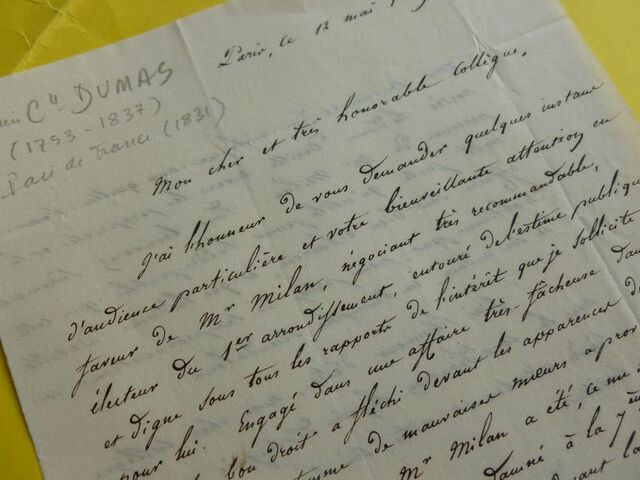 Paris, ce 12 mai
Cte DUMAS
(1753-1837)
Pair de France (1831)
Mon cher et très honorable Collègue,
J'ai l'honneur de vous demander quelques instans
d'audience particulière et votre bienveillante attention en
faveur de Mr Milan, négociant très recommandable,
électeur du 1er arrondissement, entouré de l'estime publique
et digne sous tous les rapports de l'intérêt que je sollicite
pour lui. Engagé dans une affaire très-fâcheuse dans
bon droit a fléchi devant les apparences
de mauvaises mœurs a
Mr Milan a été, ce me
à la 7